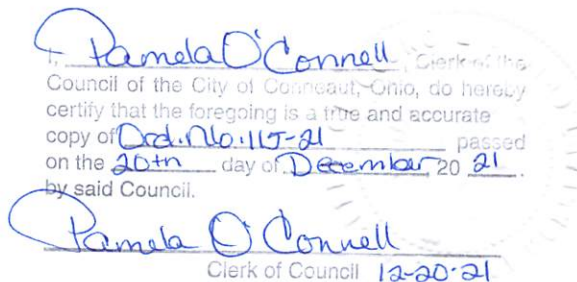 I, Pamela O'Connell, Clerk of the
Council of the City of Conneaut, Ohio, do hereby
certify that the foregoing is a true and accurate
copy of Ord. No. 115-21 passed
on the 20th day of December, 20 21.
by said Council.
Pamela O'Connell
Clerk of Council 12-20-21